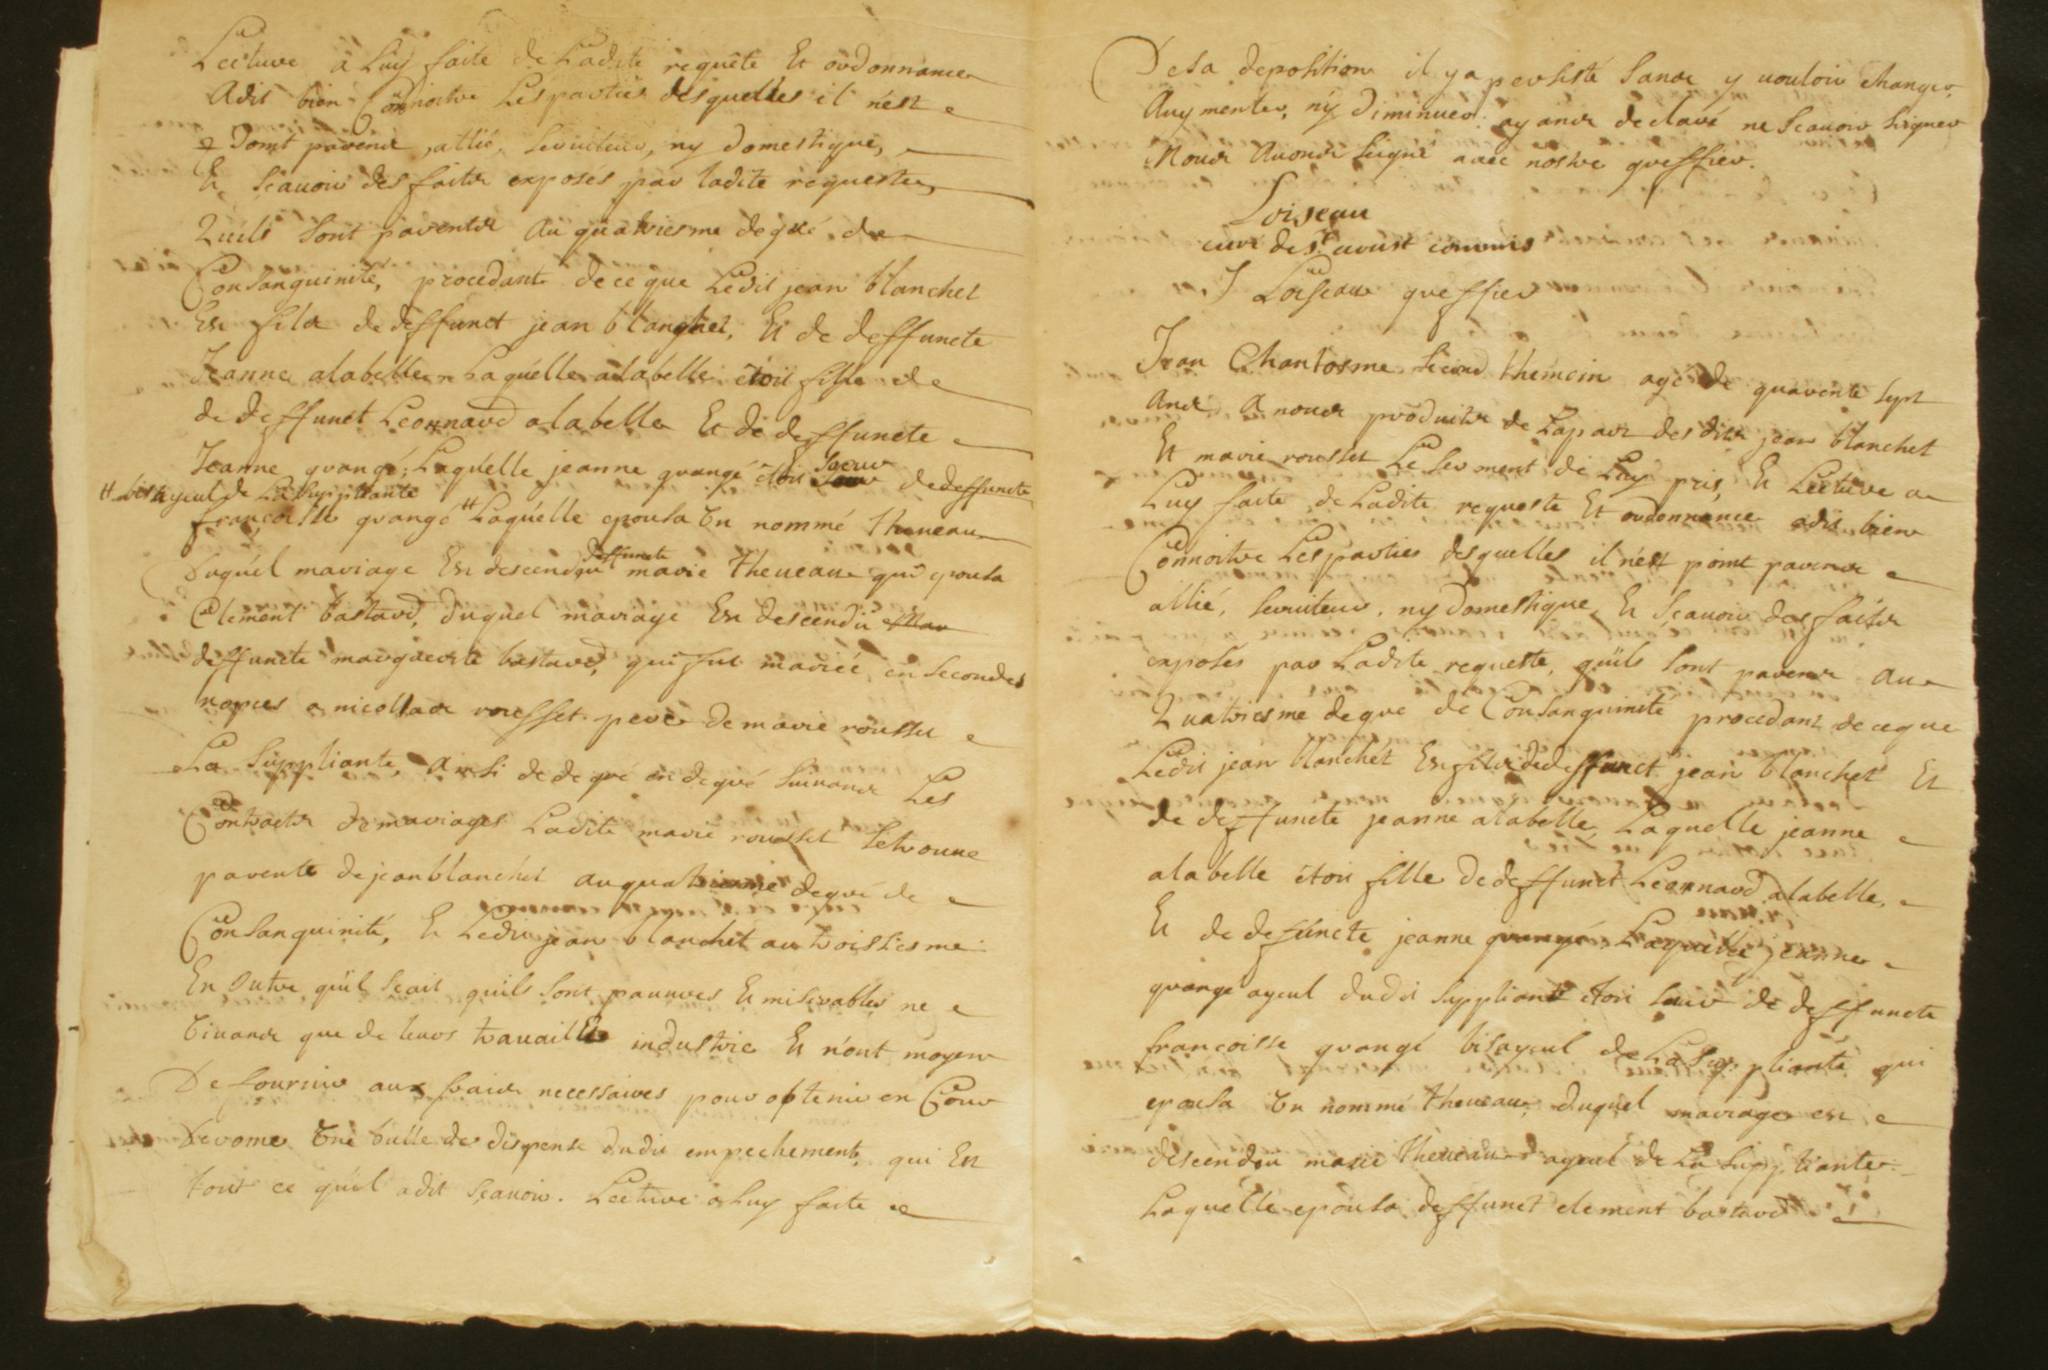 Lecture a Luy faite de Ladite requête Et ordonnance
Adit bien Connoitre Les parties desquelles il n'est
Point parent, allié, serviteur, ny Domestique,
Et Scavoir des faits exposés par ladite requeste,
Quils sont parents Au quatriesme degré de
Consanguinité, procedant de ce que Ledit jean blanchet
Est fils de deffunct jean blanchet, Et de deffuncte
Jeanne alabelle Laquelle alabelle étoit fille de
de deffunct Leonnard alabelle Et de deffuncte
Jeanne grangé, Laquelle jeanne grangé étoit Soeur de deffuncte
# bisayeul de La Suppliante
françoise grangé # Laquelle epousa Un nommé theueau
Duquel mariage Est descendue deffuncte marie theueau qui epousa
Clement bastard, duquel mariage Est descendu
deffuncte marguerite bastard, qui fut mariée en secondes
nopces a nicollas rousset pere de marie rousset
La Suppliante, Ainsi de degré en degré suivant Les
Contracts de mariages Ladite marie rousset se trouve
parente de jean blanchet au quatriesme degré de
Consanguinité, Et Ledit jean blanchet au troissiesme
En Outre qu'il Scait qu'ils sont pauvres Et miserables ne
Vivants que de leurs travaille Et industrie Et n'ont moyen
De fournir aux frais necessaires pour obtenir en Cour
De rome Une bulle de dispense dudit empechement, qui Est
tout ce qu'il a dit Scavoir. Lecture a Luy faite
De sa deposition il y a persisté sans y vouloir changer,
Augmenter, ny Diminuer, ayant declaré ne Scavoir signer
Nous Avons signé avec nostre greffier.
Loiseau
curé de St avust commis
J Loiseau greffier
Jean Chantosme second themoin agé de quarente sept
Ans A nous produits de La part des dits jean blanchet
Et marie rousset Le serment de Luy pris, Et Lecture a
Luy faite de Ladite requeste Et ordonnance a dit bien
Connoitre Les parties desquelles il n'est point parent
allié, serviteur, ny Domestique, Et Scavoir des faits
exposés par Ladite requeste, qu'ils sont parent Au
Quatriesme degré de Consanguinité procedant de ce que
Ledit jean blanchet Est fils de deffunct jean blanchet Et
de deffuncte jeanne alabelle, Laquelle jeanne
alabelle étoit fille de deffunct Leonnard alabelle,
Et de defuncte jeanne grangé, Laquelle jeanne
grangé ayeul dudit Suppliant étoit seur de deffuncte
françoisse grangé bisayeul de La Suppliante qui
epousa Un nommé theueau, duquel mariage est
descendu marie theueau ayeul de La Suppliante
Laquelle epousa deffunct clement bastard